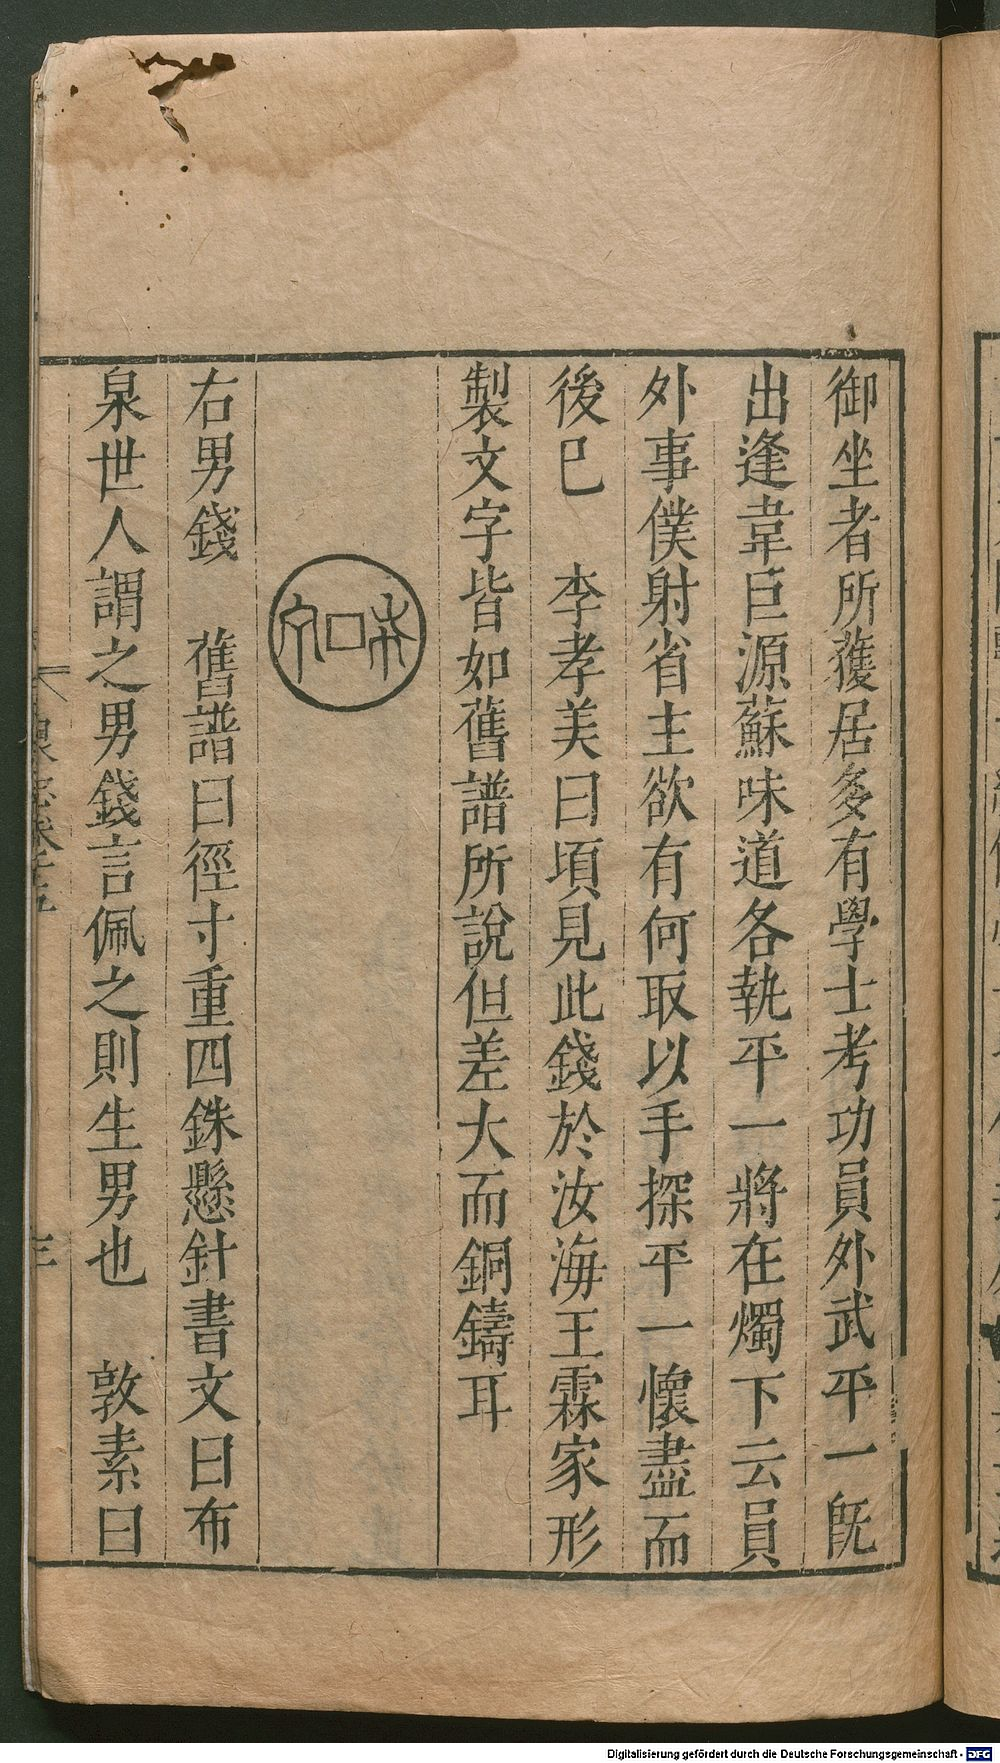 御坐者所獲居多有學士考功員外武平一旣
出逢韋巨源蘇味道各執平一將在燭下云員
外事僕射省主欲有何取以手探平一懷盡而
後已　李孝美曰頃見此錢於汝海王霖家形
製文字皆如舊譜所說但差大而銅鑄耳
右男錢　舊譜曰徑寸重四銖懸針書文曰布
泉世人謂之男錢言佩之則生男也　敦素曰
三
Digitalisierung gefördert durch die Deutsche Forschungsgemeinschaft - DFG